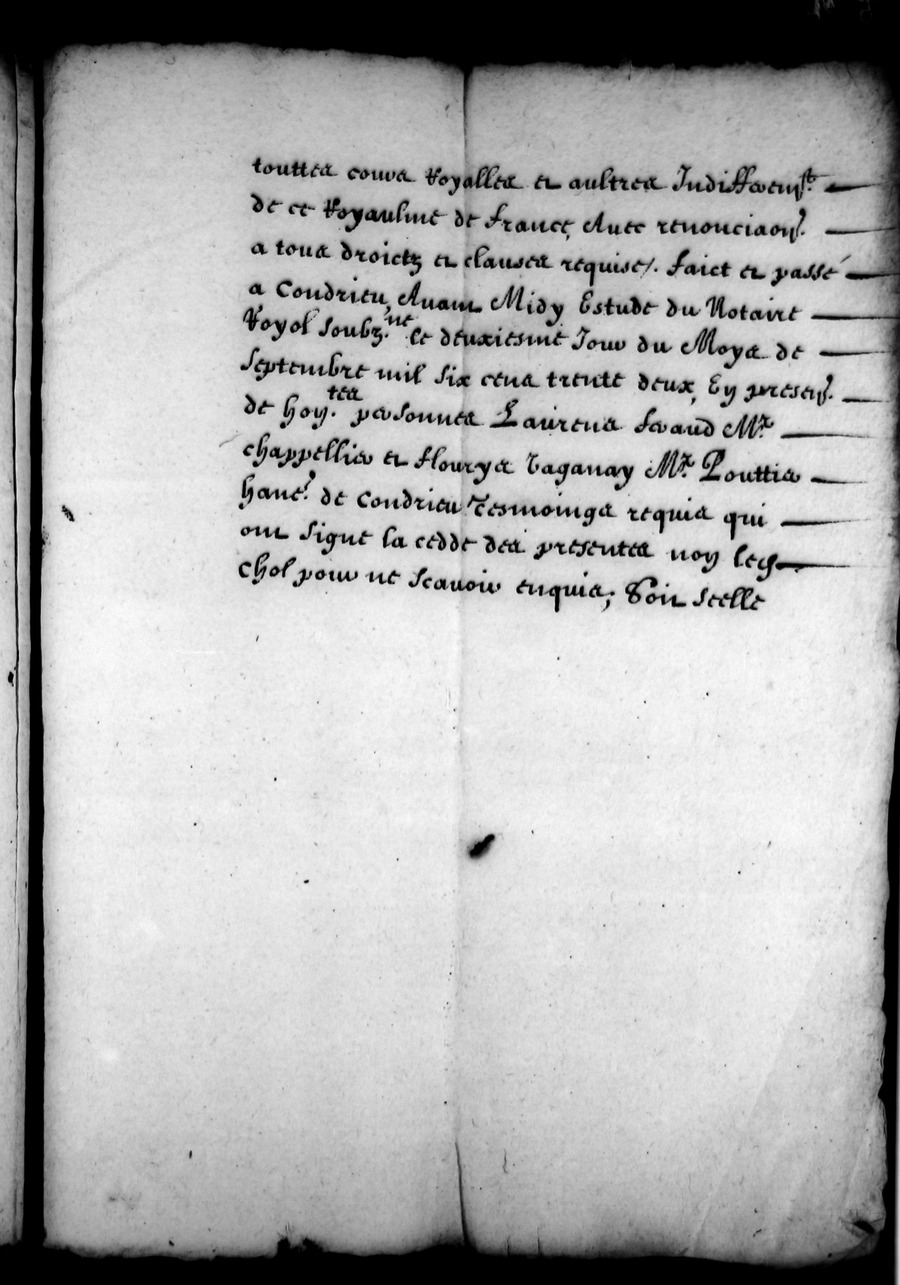 touttes cours Royalles et aultres Indifferem.t
de ce Royaulme de france, Avec renonciaon.
a tous droictz et clauses requises. faict et passé
a Condrieu, Avant Midy Estude du Notaire
Royol soubz.né Ce deuxiesme Jour du Moys de
septembre mil six cens trente deux, En presen.
de hon.tes personnes Laurens feraud M.r
chappellier et flourys Taganay M.r Pouttier
hane.t de Condrieu Tesmoings requis qui
ont signé la cedde des presentes non led
Chol pour ne scavoir enquis; Soit scellé